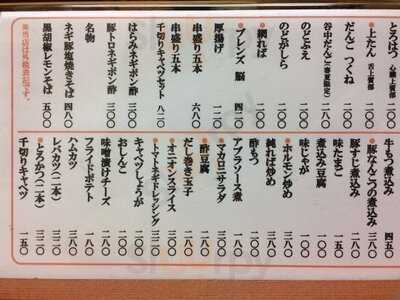 とろはつ 心臓上賀部 二〇〇
●上たん 舌上賀部 二〇〇
だんご つくね 二〇〇
谷中だんご(春夏限定) 二八〇
のどぶえ 二〇〇
のどがしら 二〇〇
●網れば 二〇〇
●ブレンズ 脳 二四〇
厚揚げ 一二〇
串盛り五本 六八〇
串盛り五本
千切りキャベツセット 八二〇
はらみネギポン酢 三〇〇
豚トロネギポン酢 三〇〇
名物
ネギ豚塩焼きそば 四八〇
黒胡椒レモンそば 五〇〇
※当店は外税表記です。
牛もつ煮込み 四五〇
●豚なんこつの煮込み
豚すじ煮込み 二八〇
味たまご 一五〇
煮込み豆腐 一八〇
味じゃが 一八〇
●ホルモン炒め
純れば炒め 三三〇
酢もつ 二八〇
アブラソース煮 一八〇
●マカロニサラダ
●酢豆腐 二〇〇
だし巻き玉子
●オニオンスライス
トマトネギドレッシング 三二〇
キャベツしょうが
おしんこ 二〇〇
味噌漬けチーズ
フライドポテト 一八〇
ハムカツ 一八〇
レバカツ(一本)
●とろかつ(二本) 三二〇
千切りキャベツ 一五〇